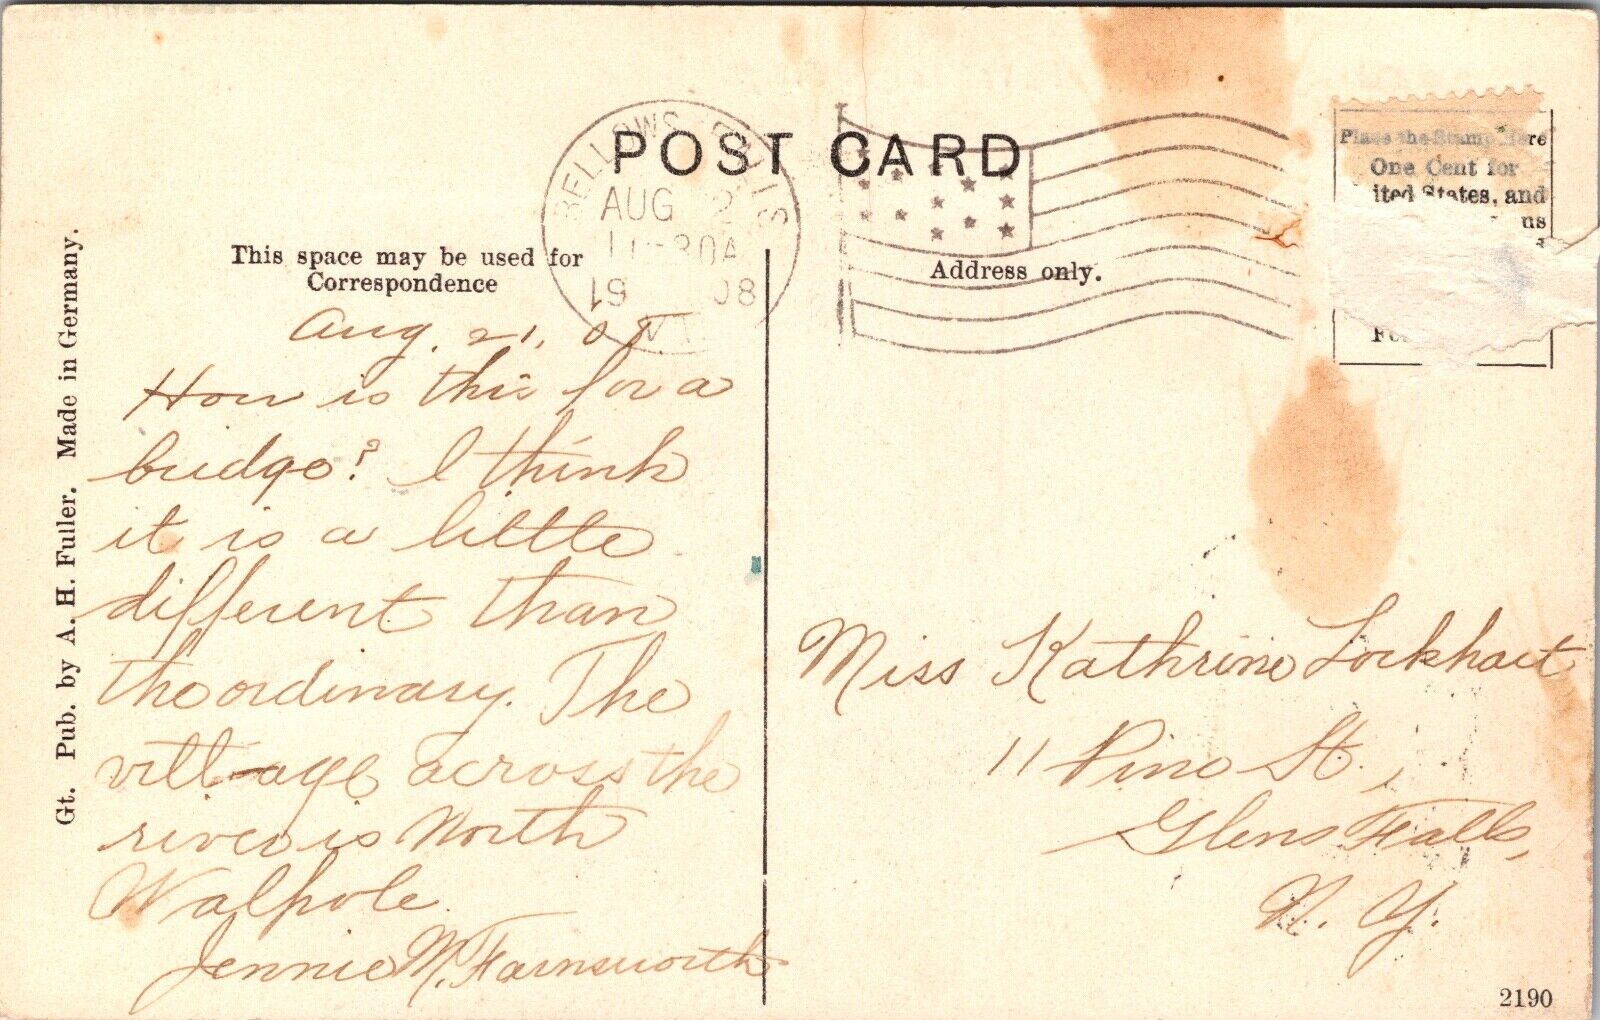 POST CARD
BELLOWS FALLS
AUG 2
11-30A
19 08
VT.
Place the Stamp Here
One Cent for
ited States, and
This space may be used for
Correspondence
Address only.
Gt. Pub. by A. H. Fuller. Made in Germany.
Aug. 21, 0
How is this for a
bridge? I think
it is a little
different than
the ordinary. The
village across the
river is North
Walpole.
Jennie M. Farnsworth
Miss Kathrine Lockhart
11 Pine St.,
Glens Falls,
N. Y.
2190